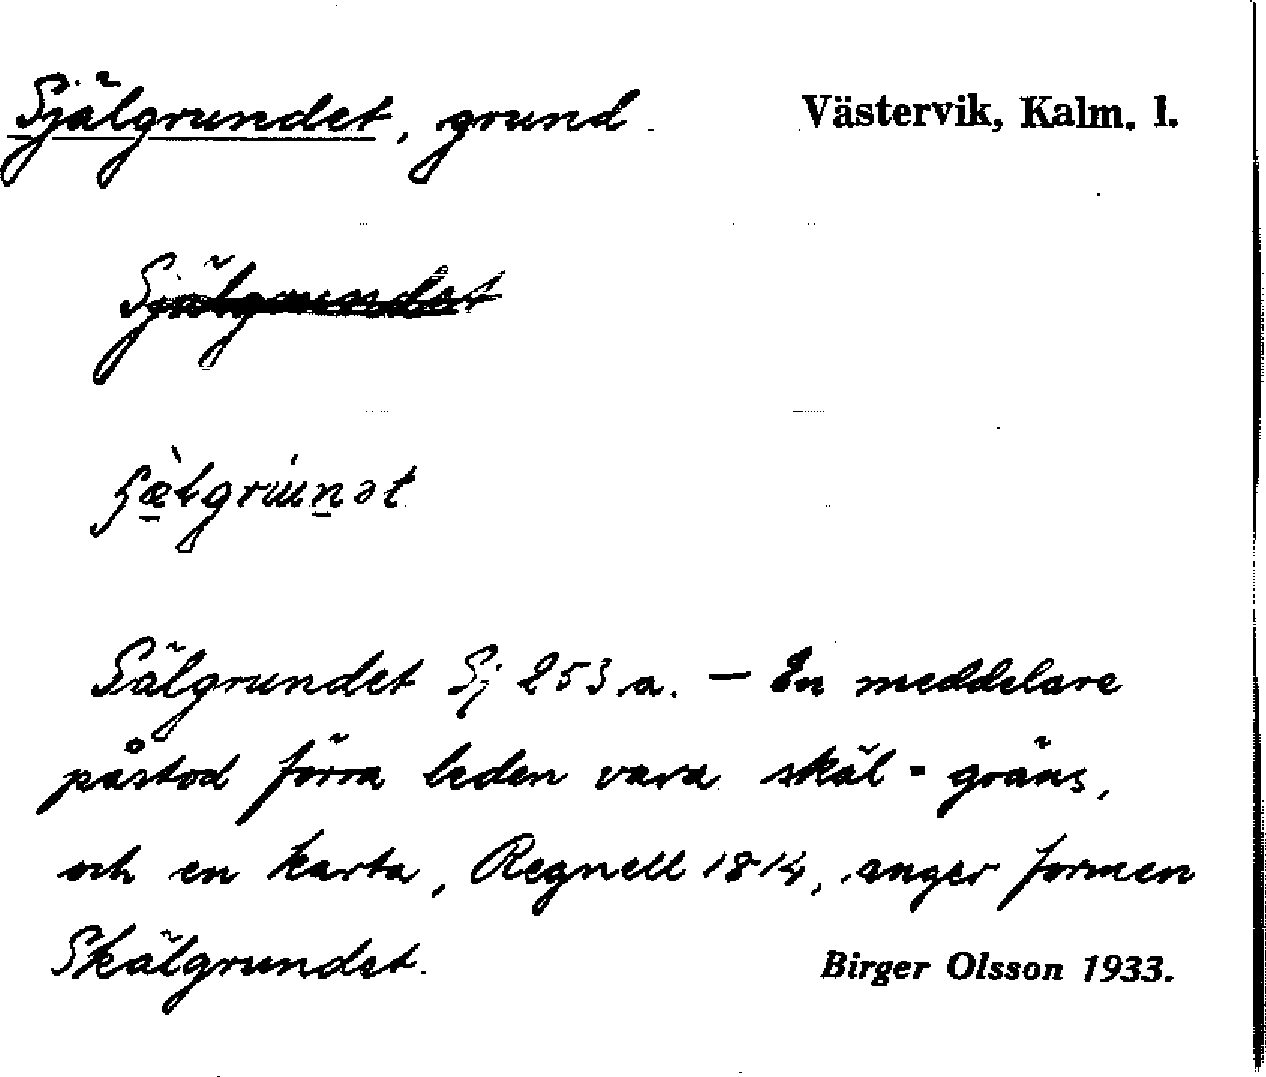 Själgrundet, grund. Västervik, Kalm. l.
Själgrundet
Sälgrundet Sj 253 a. – En meddelare
påstod förra leden vara skäl - gräns,
och en karta, Regnell 1814, anger formen
Skälgrundet. Birger Olsson 1933.